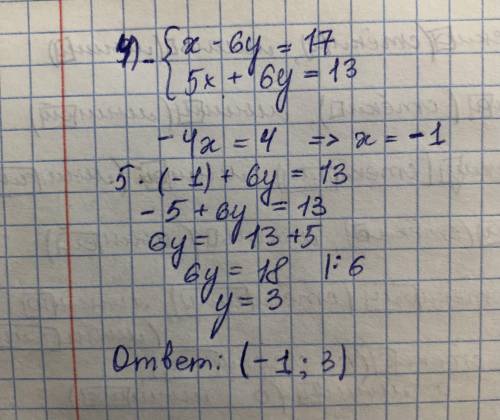 4) - { x - 6y = 17
5x + 6y = 13
- 4x = 4 => x = -1
5 · (-1) + 6y = 13
- 5 + 6y = 13
6y = 13 + 5
6y = 18 |: 6
y = 3
Ответ: (-1; 3)